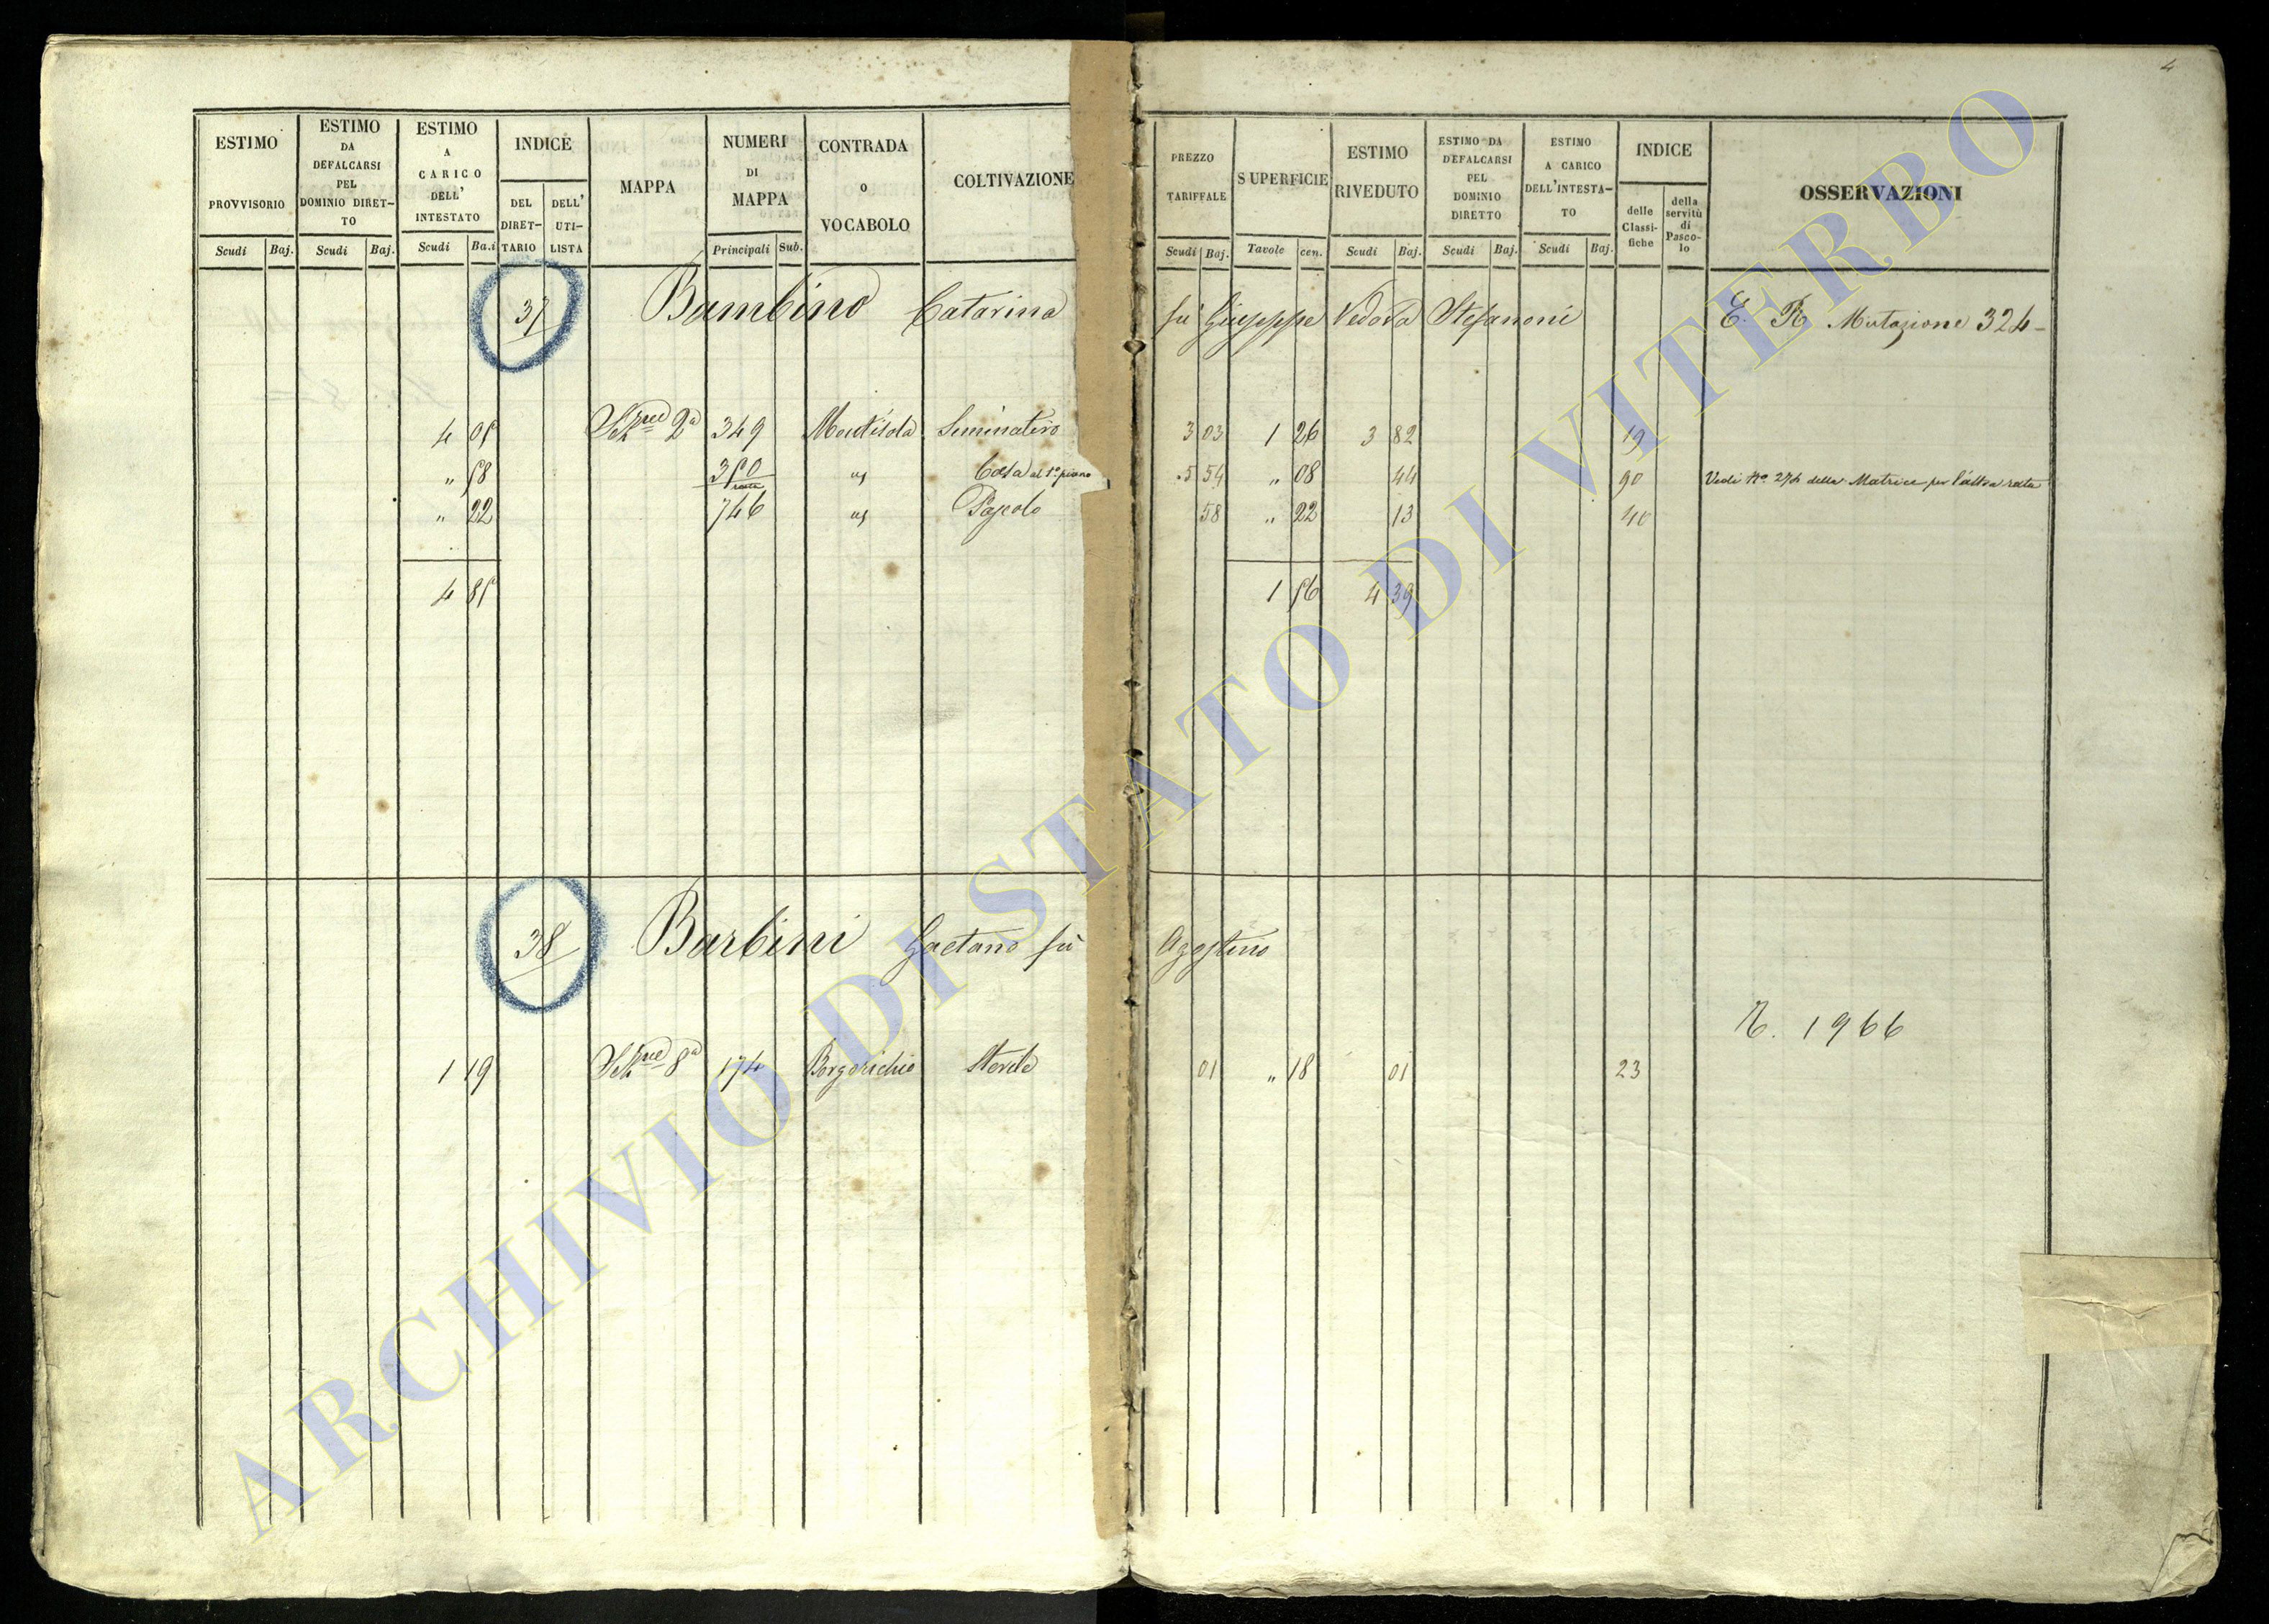 4
ESTIMO PROVVISORIO
ESTIMO DA DEFALCARSI PEL DOMINIO DIRET-TO
ESTIMO A CARICO DELL' INTESTATO
INDICE
DEL DIRET-TARIO
DELL' UTI-LISTA
MAPPA
NUMERI DI MAPPA
CONTRADA O VOCABOLO
COLTIVAZIONE
PREZZO TARIFFALE
SUPERFICIE
ESTIMO RIVEDUTO
ESTIMO DA DEFALCARSI PEL DOMINIO DIRETTO
ESTIMO A CARICO DELL'INTESTA-TO
INDICE
delle Classi-fiche
della servitù di Pasco-lo
OSSERVAZIONI
Scudi Baj. Scudi Baj. Scudi Ba.i Principali Sub. Scudi Baj. Tavole cen. Scudi Baj. Scudi Baj. Scudi Baj.
37 Bambino Catarina fù Giuseppe Vedova Stefanoni E. R. Mutazione 324
4 05 2a 349 Seminativo 3 03 1 26 3 82 19
" 58 350 rata Casa al 1° piano 5 54 " 08 44 90 Vedi No 274 della Matrice per l'altra rata
" 22 746 Pascolo 58 " 22 13 40
4 85 1 56 4 39
38 Barbini Gaetano fù Agostino
R. 1966
1 19 8a 174 Sterile 01 " 18 01 23
ARCHIVIO DI STATO DI VITERBO